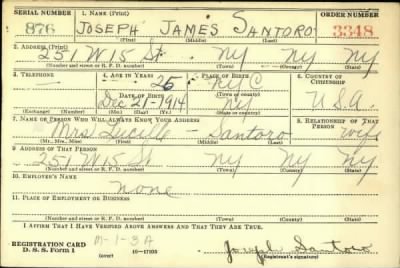 SERIAL NUMBER 1. NAME (Print) ORDER NUMBER
876 JOSEPH JAMES SANTORO 3348
(First) (Middle) (Last)
2. ADDRESS (Print)
251 W 15 St. NY NY NY
(Number and street or R. F. D. number) (Town) (County) (State)
3. TELEPHONE 4. AGE IN YEARS 5. PLACE OF BIRTH 6. COUNTRY OF CITIZENSHIP
— 25 N.Y.C
DATE OF BIRTH (Town or county)
Dec 21-1914 NY U.S.A.
(Exchange) (Number) (Mo.) (Day) (Yr.) (State or country)
7. NAME OF PERSON WHO WILL ALWAYS KNOW YOUR ADDRESS 8. RELATIONSHIP OF THAT PERSON
Mrs Lucille - Santoro wife
(Mr., Mrs., Miss) (First) (Middle) (Last)
9. ADDRESS OF THAT PERSON
251 W 15 St NY NY NY
(Number and street or R. F. D. number) (Town) (County) (State)
10. EMPLOYER'S NAME
none
11. PLACE OF EMPLOYMENT OR BUSINESS
(Number and street or R. F. D. number) (Town) (County) (State)
I AFFIRM THAT I HAVE VERIFIED ABOVE ANSWERS AND THAT THEY ARE TRUE.
REGISTRATION CARD M-1-3A
D. S. S. Form 1 (over) 16—17105 Joseph Santoro
(Registrant's signature)